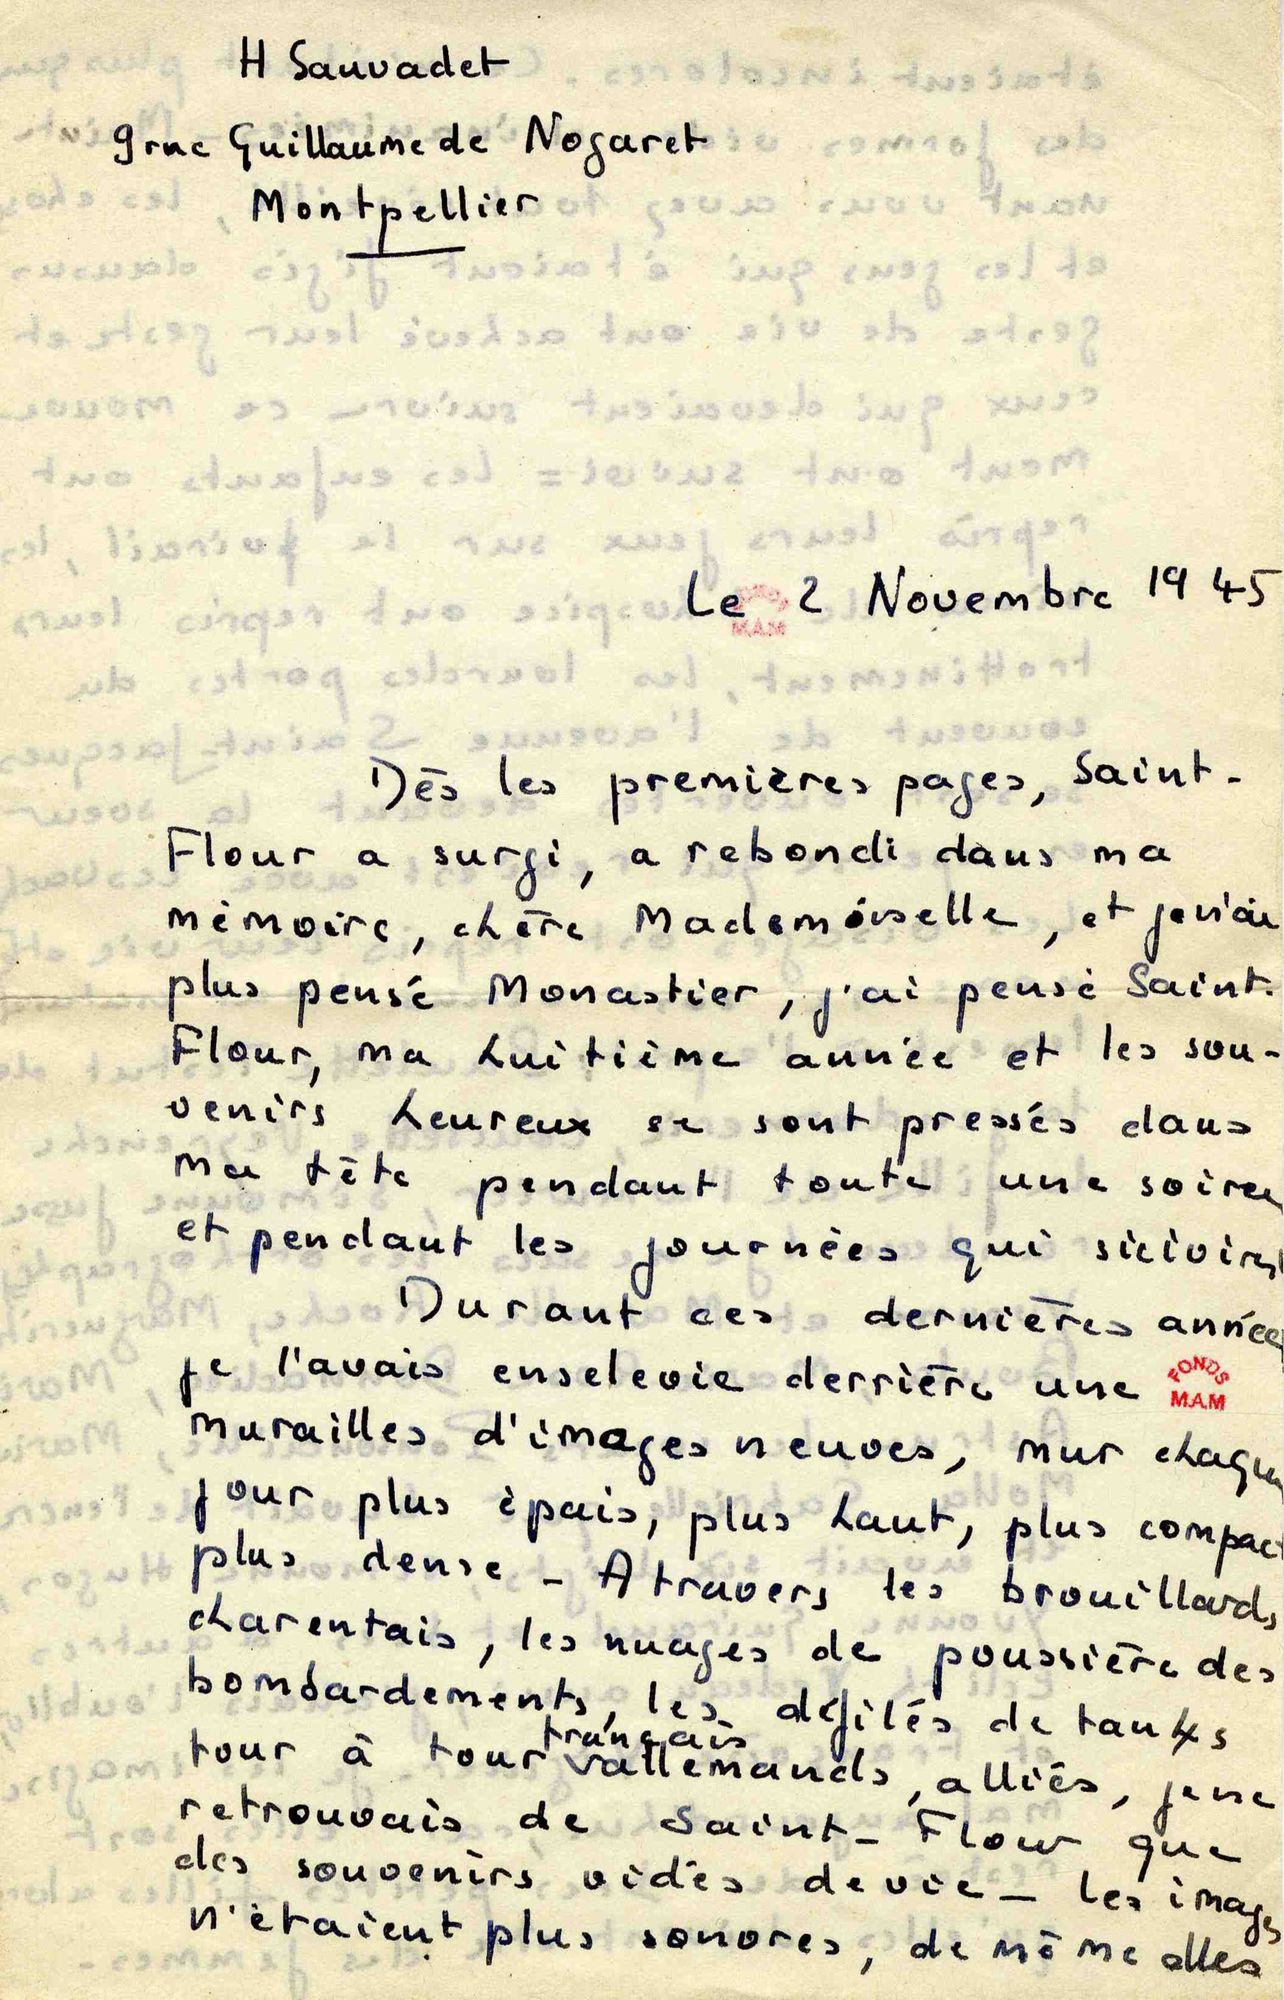 H Sauvadet
9 rue Guillaume de Nogaret
Montpellier
Le 2 Novembre 1945
FONDS
MAM
Dès les premières pages, Saint-
Flour a surgi, a rebondi dans ma
mémoire, chère Mademoiselle, et je n'ai
plus pensé Monastier, j'ai pensé Saint-
Flour, ma huitième année et les sou-
venirs heureux se sont pressés dans
ma tête pendant toute une soirée
et pendant les journées qui suivirent
Durant ces dernières années
je l'avais enselevie derrière une
FONDS
M.A.M
murailles d'images neuves, mur chaque
jour plus épais, plus haut, plus compact
plus dense - A travers les brouillards
charentais, les nuages de poussière des
bombardements, les défilés de tanks
français
tour à tour allemands, alliés, je ne
retrouvais de Saint-Flour que
des souvenirs vidés de vie - les images
n'étaient plus sonores, de même elles